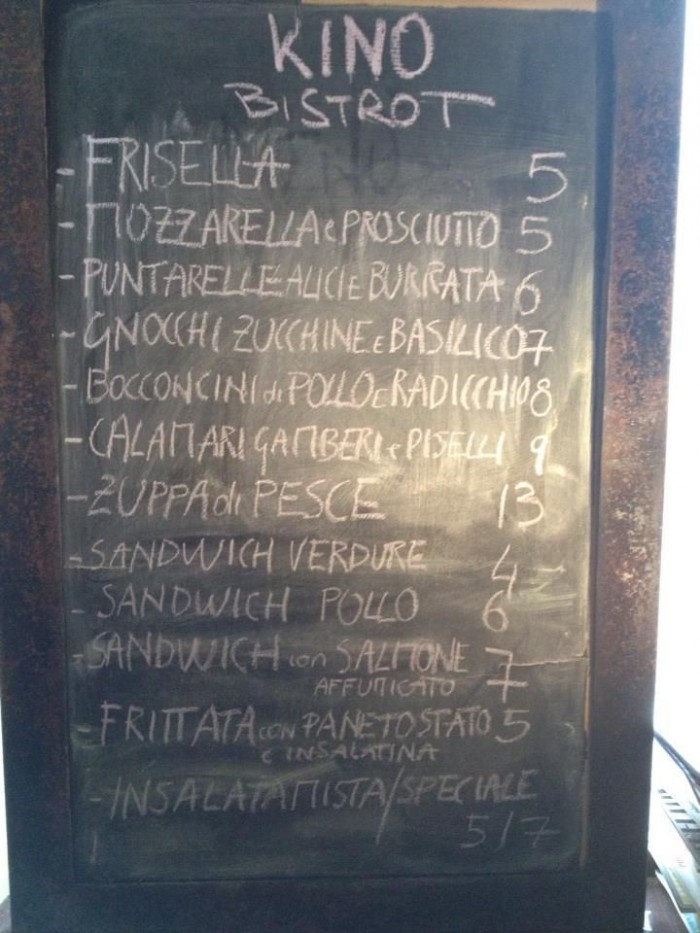 KINO
BISTROT
- FRISELLA 5
- MOZZARELLA e PROSCIUTTO 5
- PUNTARELLE ALICI E BURRATA 6
- GNOCCHI ZUCCHINE E BASILICO 7
- BOCCONCINI di POLLO E RADICCHIO 8
- CALAMARI GAMBERI e PISELLI 9
- ZUPPA di PESCE 13
- SANDWICH VERDURE 4
- SANDWICH POLLO 6
- SANDWICH con SALMONE 7
AFFUMICATO
- FRITTATA con PANE TOSTATO 5
e INSALATINA
- INSALATA MISTA/SPECIALE
5/7